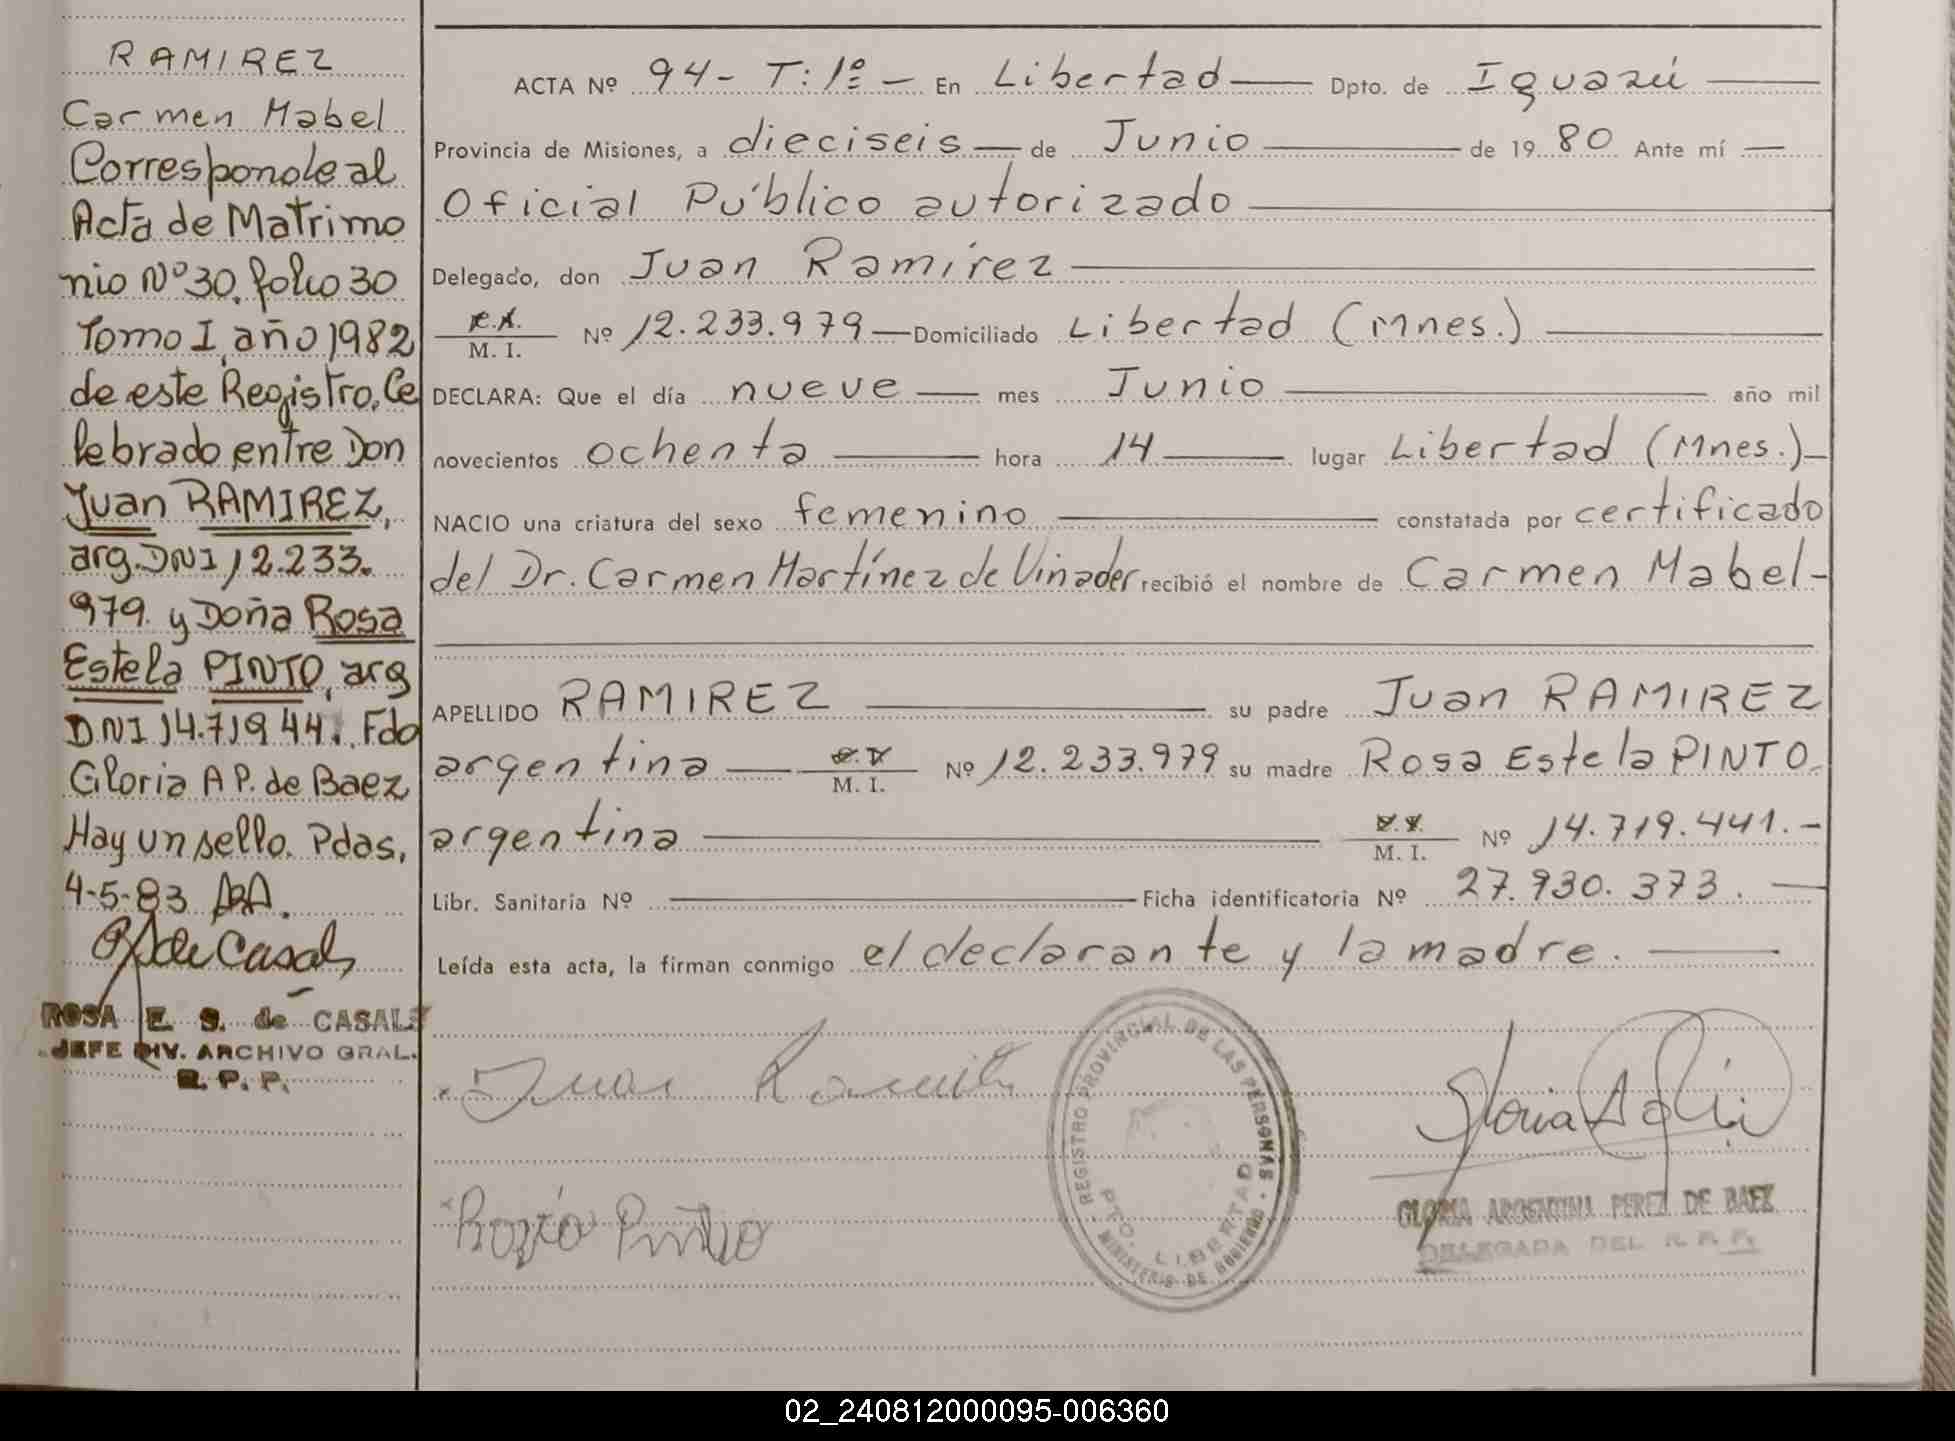 RAMIREZ
Carmen Mabel
Corresponde al
Acta de Matrimo
nio Nº 30, folio 30
Tomo I, año 1982
de este Registro, Ce
lebrado entre Don
Juan RAMIREZ,
arg. DNI 12.233.
979. y Doña Rosa
Estela PINTO, arg
DNI 14.719 441. Fdo
Gloria A P. de Baez
Hay un sello. Pdas,
4-5-83
de Casals
ROSA E. S. de CASALS
JEFE DIV. ARCHIVO GRAL.
R. P. P.
ACTA Nº 94- T: 1º - En Libertad Dpto. de Iguazú
Provincia de Misiones, a dieciseis de Junio de 1980 Ante mí
Oficial Público autorizado
Delegado, don Juan Ramírez
M. I. Nº 12.233.979 Domiciliado Libertad (Mnes.)
DECLARA: Que el día nueve mes Junio año mil
novecientos ochenta hora 14 lugar Libertad (Mnes.)-
NACIO una criatura del sexo femenino constatada por certificado
del Dr. Carmen Martínez de Vinader recibió el nombre de Carmen Mabel-
APELLIDO RAMIREZ su padre Juan RAMIREZ
argentina M. I. Nº 12.233.979 su madre Rosa Estela PINTO.
argentina M. I. Nº 14.719.441.-
Libr. Sanitaria Nº Ficha identificatoria Nº 27.930.373.
Leída esta acta, la firman conmigo el declarante y la madre.
Juan Ramirez
Pinto
REGISTRO PROVINCIAL DE LAS PERSONAS -
PTO. LIBERTAD
MINISTERIO DE GOBIERNO
GLORIA ARGENTINA PEREZ DE BAEZ
DELEGADA DEL R. P. P.
02_240812000095-006360